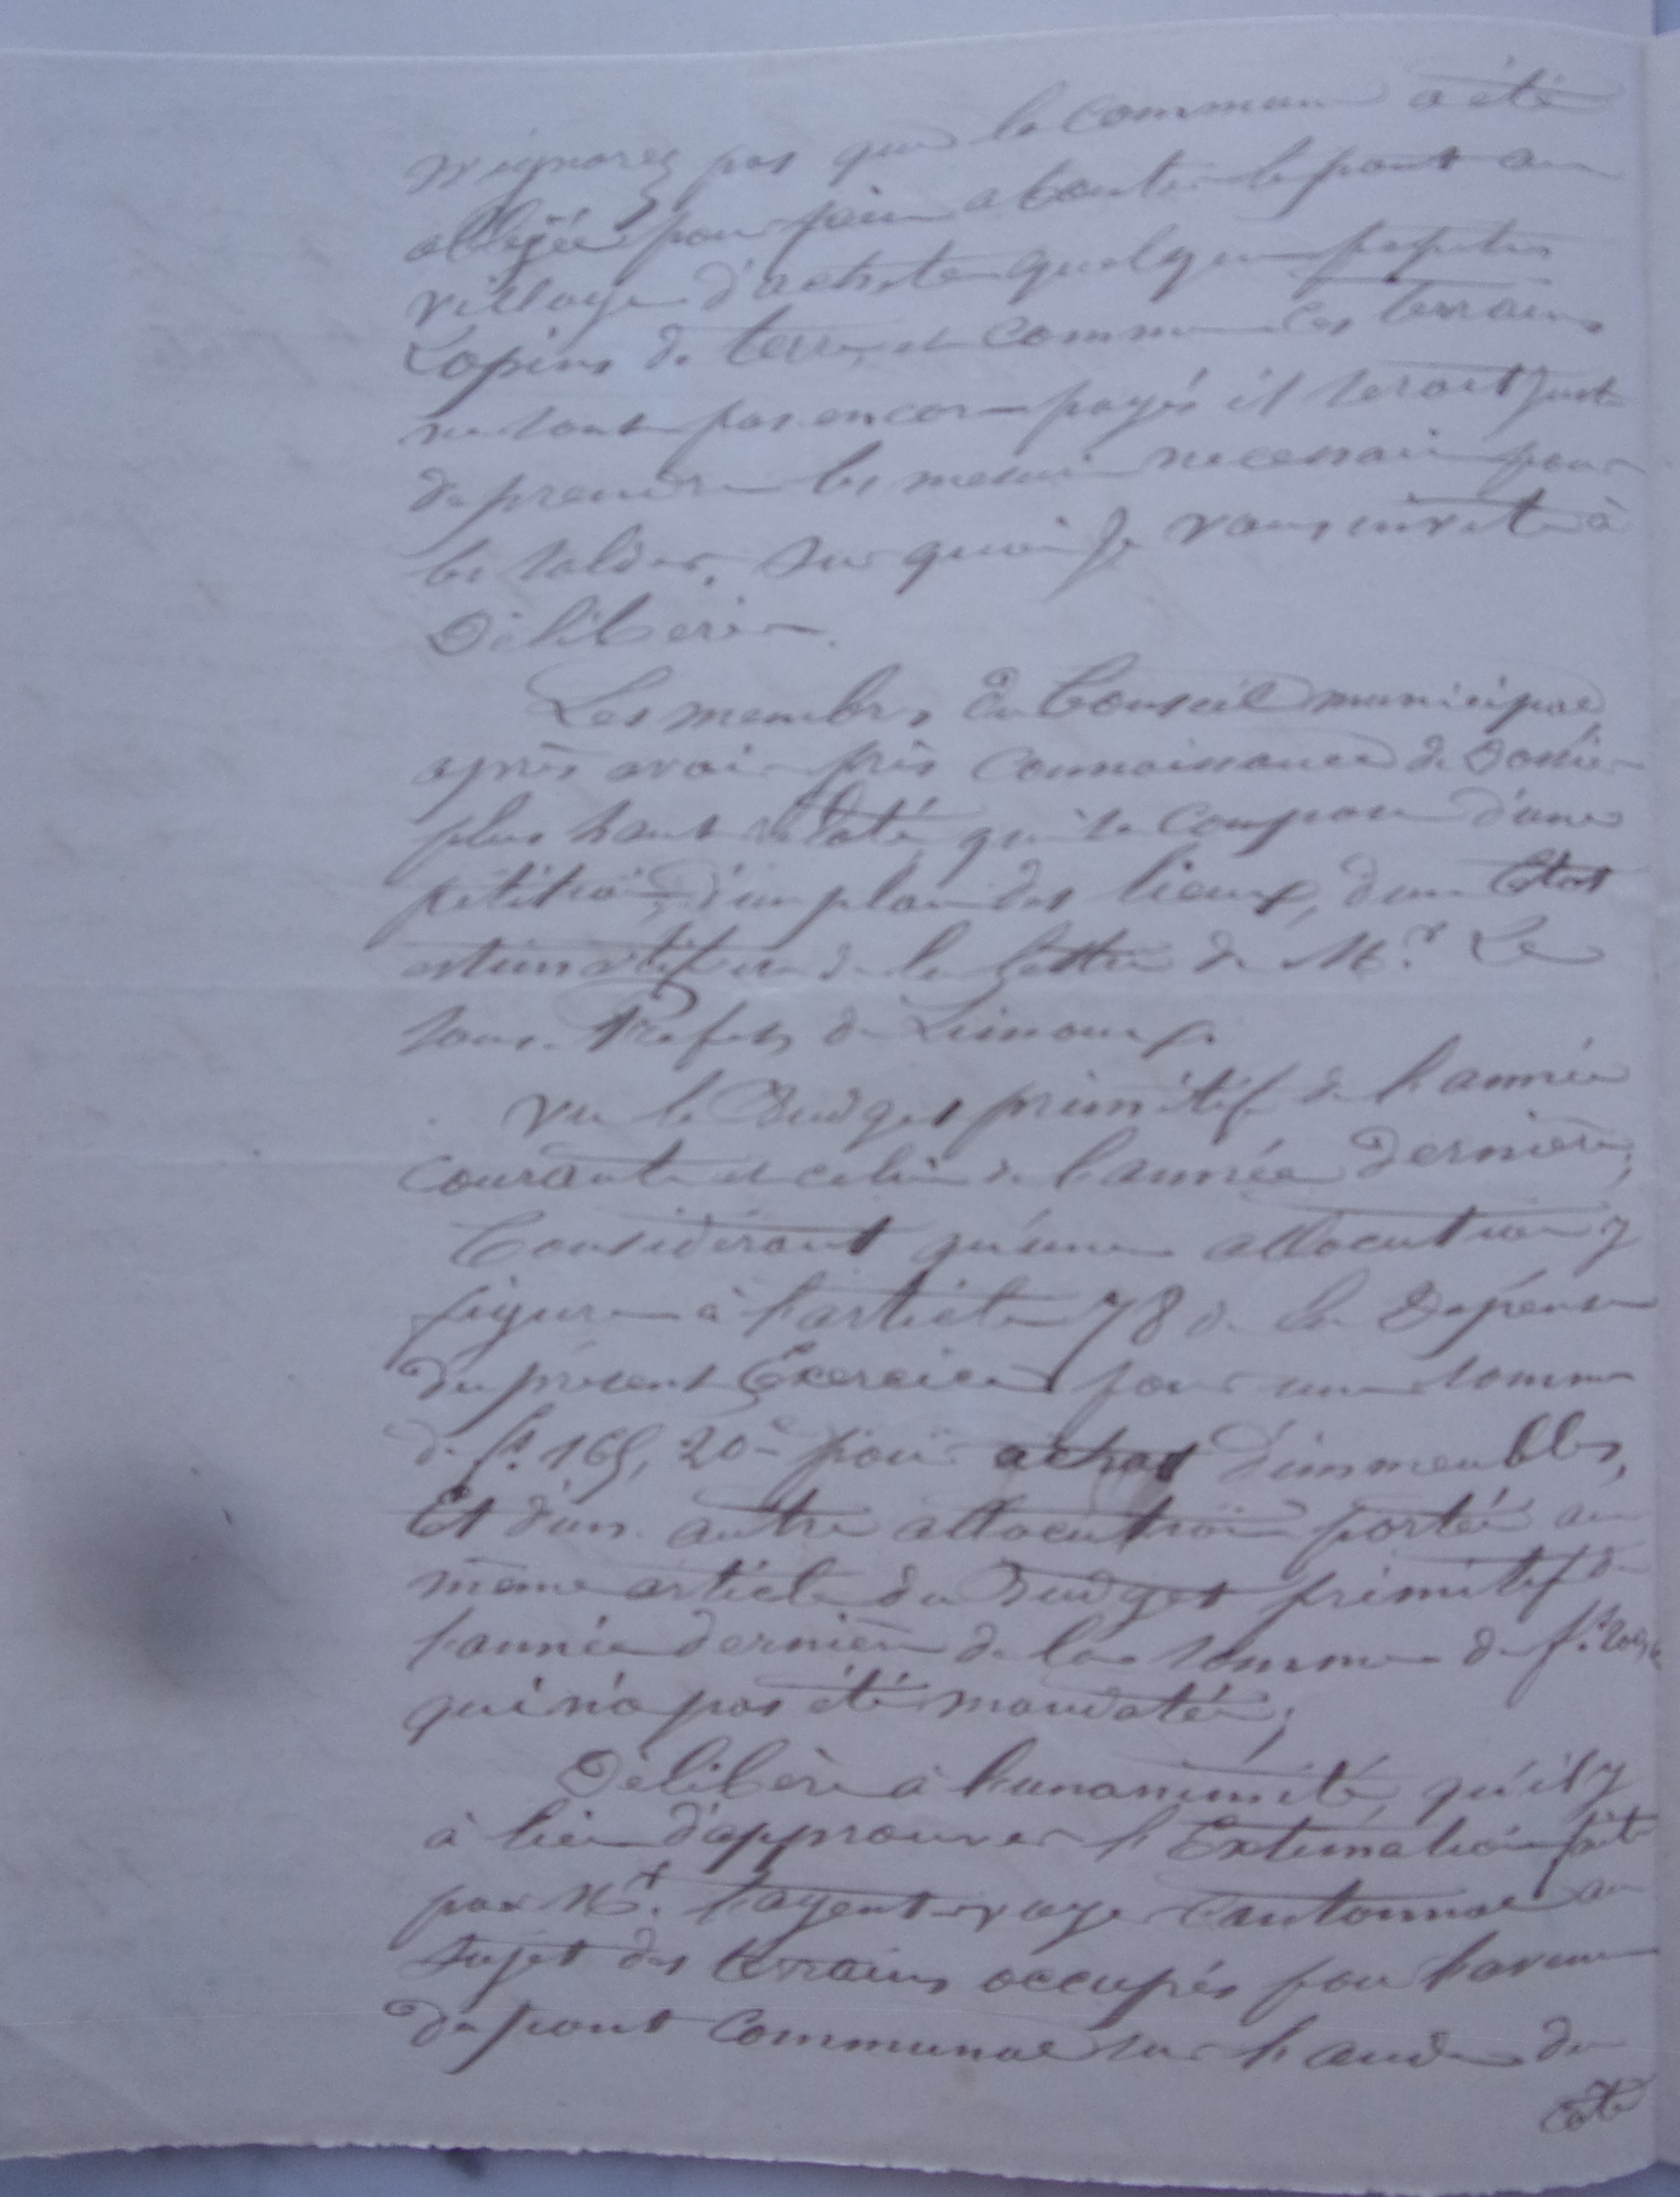 n'ignorez pas que la commune a été
obligée pour faire aboutir le pont au
village d'acheter quelques petits
Lopins de terre, et comme ces terrains
ne sont pas encore payés il serait juste
de prendre les mesures necessaire pour
les solder, sur quoi je vous invite à
Délibérer.
Les membres du Conseil municipal
après avoir pris connaissance du Dossier
plus haut relaté qui se compose d'une
petition, d'un plan des lieux, d'un Etat
estimatif et de la lettre de Mr. Le
sous-Préfet de Limoux.
Vu le Budget primitif de l'année
courante et celui de l'année dernière;
Considérant qu'une allocution y
figure à l'article 78 de la Dépense
du présent Exercice pour une somme
de f. 165, 20c pour achat d'immeubles,
Et d'un autre allocution portée au
même article du Budget primitif de
l'année dernière de la somme de
qui n'a pas été mandatée;
Délibère à l'unanimité, qu'il y
à lieu d'approuver l'Extimation fait
par Mr. l'agent-voyer Cantonnal au
sujet des terrains occupés par l'avenue
du pont Communal sur l'aude du
côté